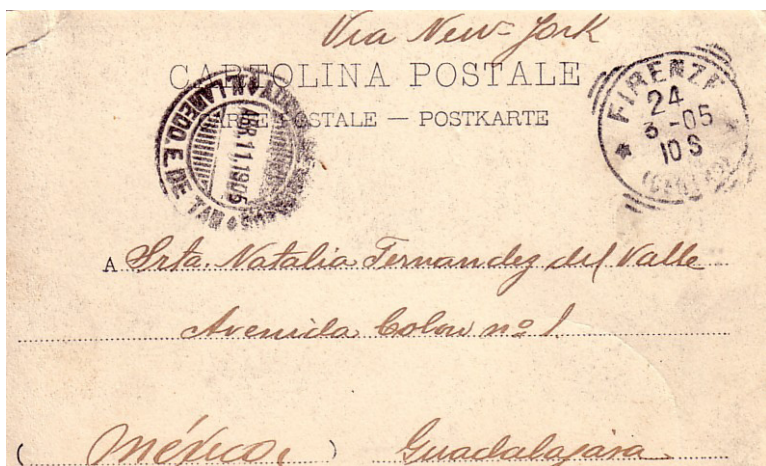 Via New-York
CARTOLINA POSTALE
CARTE POSTALE — POSTKARTE
N. LAREDO E. DE TAM
ABR. 11. 1905
FIRENZE
24
3-05
10 S
A Srta. Natalia Fernandez del Valle
Avenida Colon nº 1.
( México, ) Guadalajara